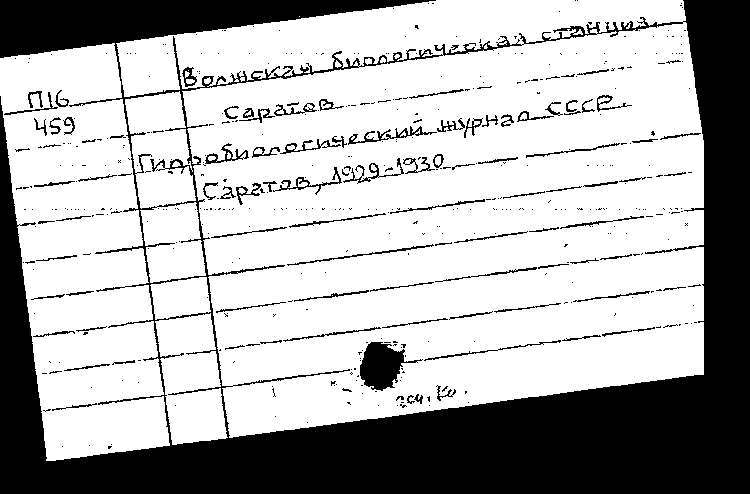 Волжская биологическая станция.
П16
459
Саратов
Гидробиологический журнал СССР.
Саратов, 1929-1930.